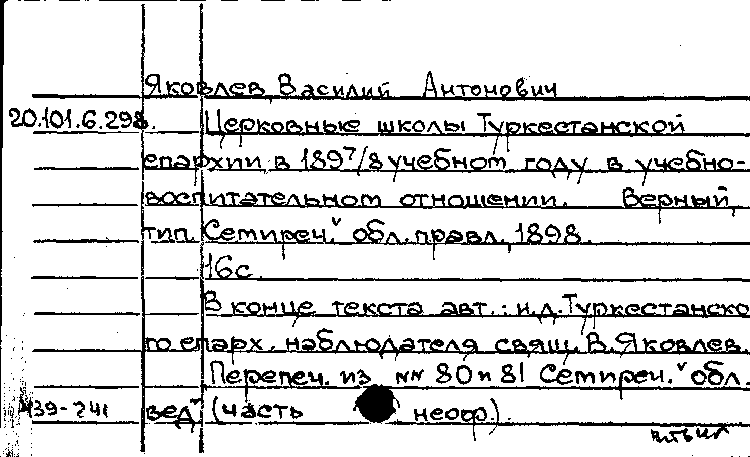 Яковлев, Василий Антонович
20.101.6.298. Церковные школы Туркестанской
епархии в 1897/8 учебном году в учебно-
воспитательном отношении. Верный,
тип. Семиреч. обл. правл., 1898.
16с.
В конце текста авт.: и.д. Туркестанско
го епарх. наблюдателя свящ. В. Яковлев.
Перепеч. из №№ 80 и 81 "Семиреч. обл.
вед" (часть неоф.).